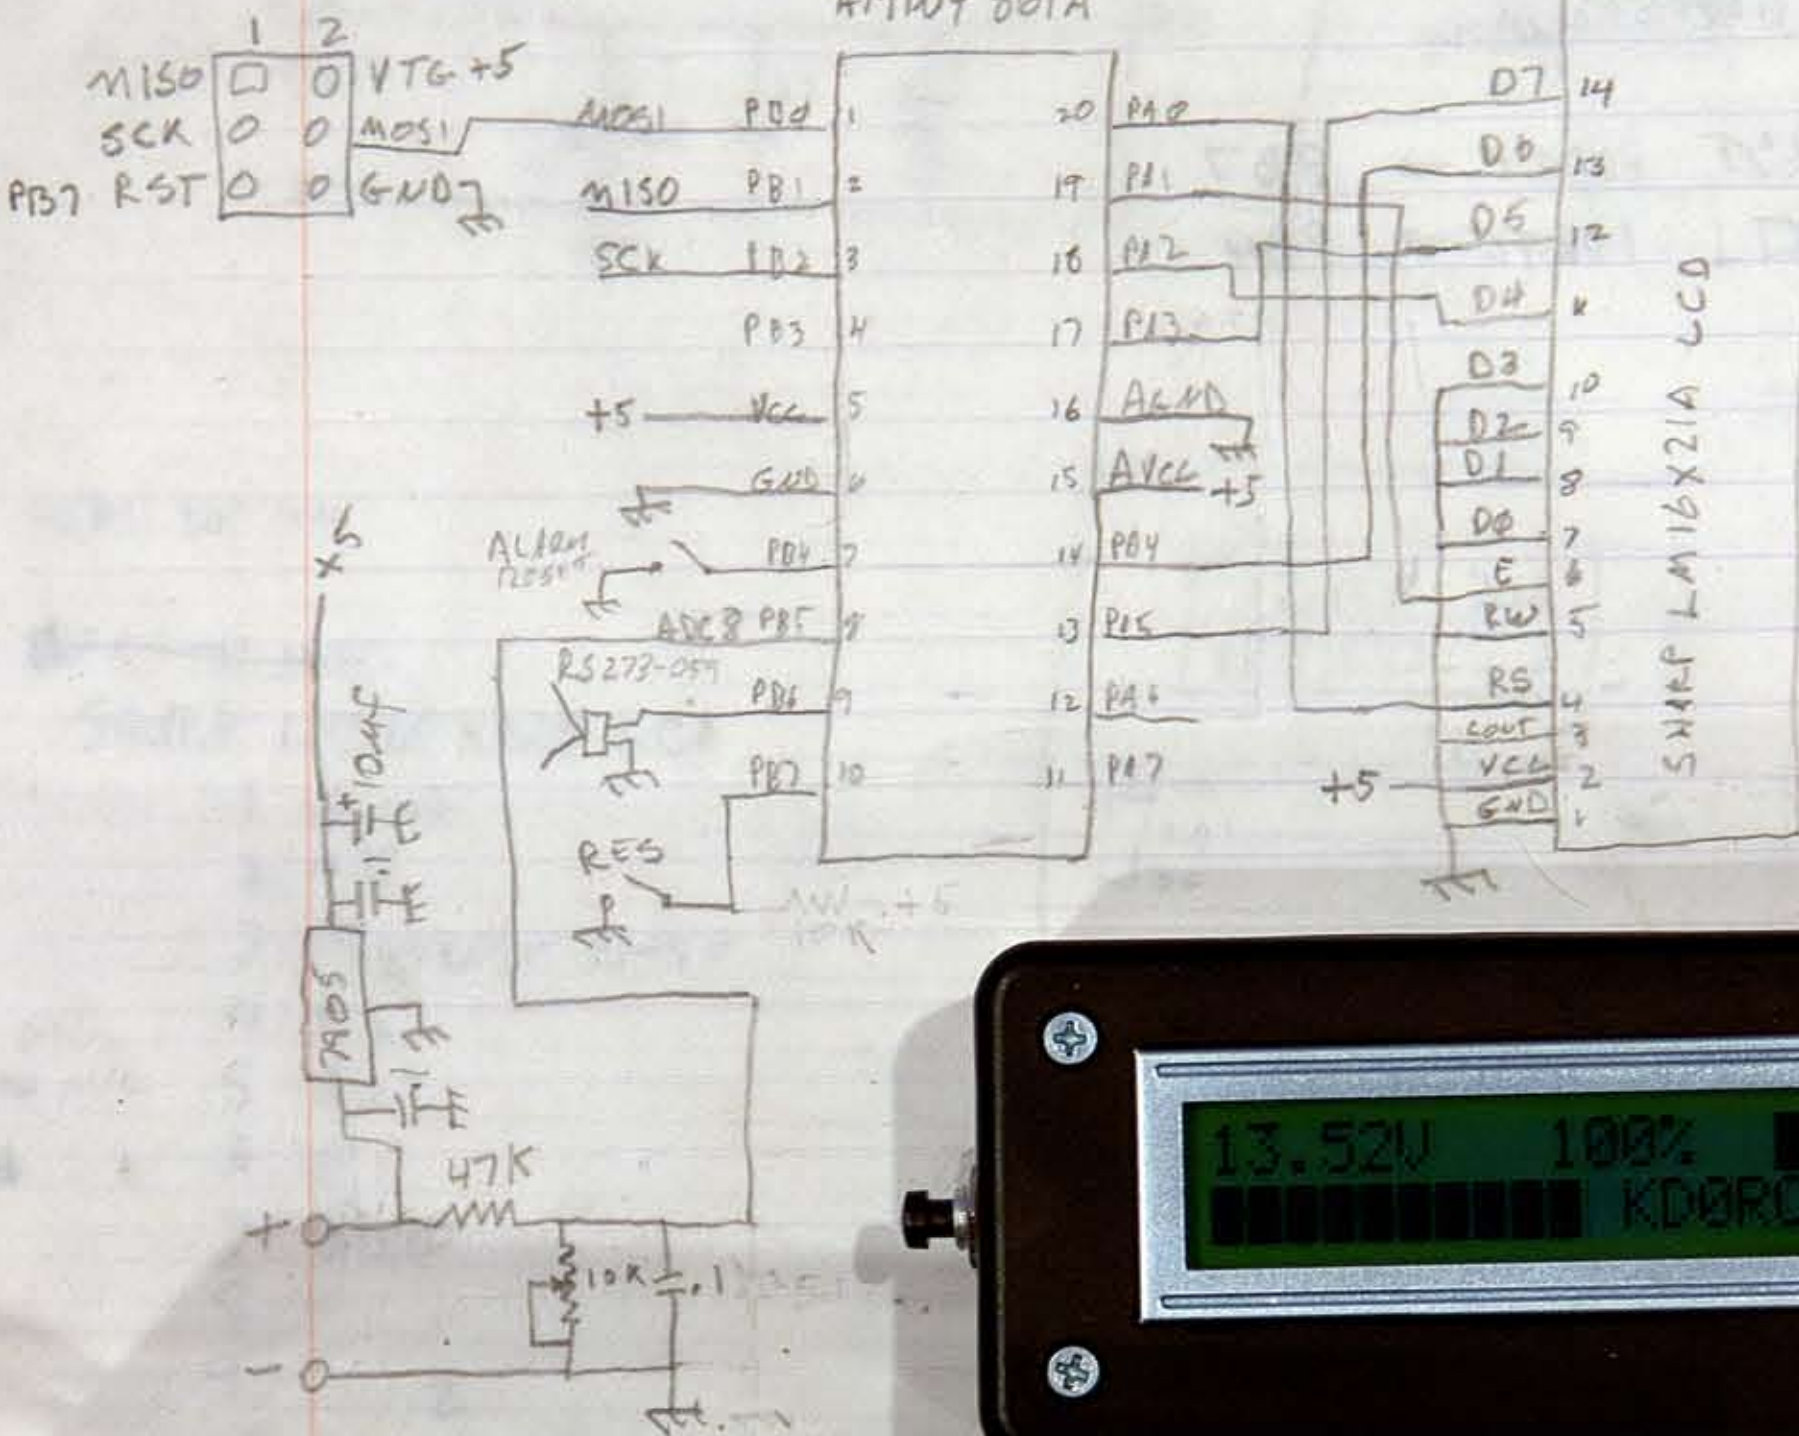 1 2
MISO VTG +5
SCK MOSI
PB7 RST GND
MOSI PB0 1
MISO PB1 2
SCK PB2 3
PB3 4
+5 VCC 5
GND 6
ALARM RESET PB4 7
ADC8 PB5 8
RS273-059
PB6 9
PB7 10
RES
10K +5
20 PA0
19 PA1
18 PA2
17 PA3
16 AGND
15 AVCC +5
14 PA4
13 PA5
12 PA6
11 PA7
D7 14
D6 13
D5 12
D4 11
D3 10
D2 9
D1 8
D0 7
E 6
RW 5
RS 4
3
+5 VCC 2
GND 1
SHARP LM16X21A LCD
+5
10uf
.1
7805
.1
47K
+
10K .1
-
13.52V 100%
KD0RC